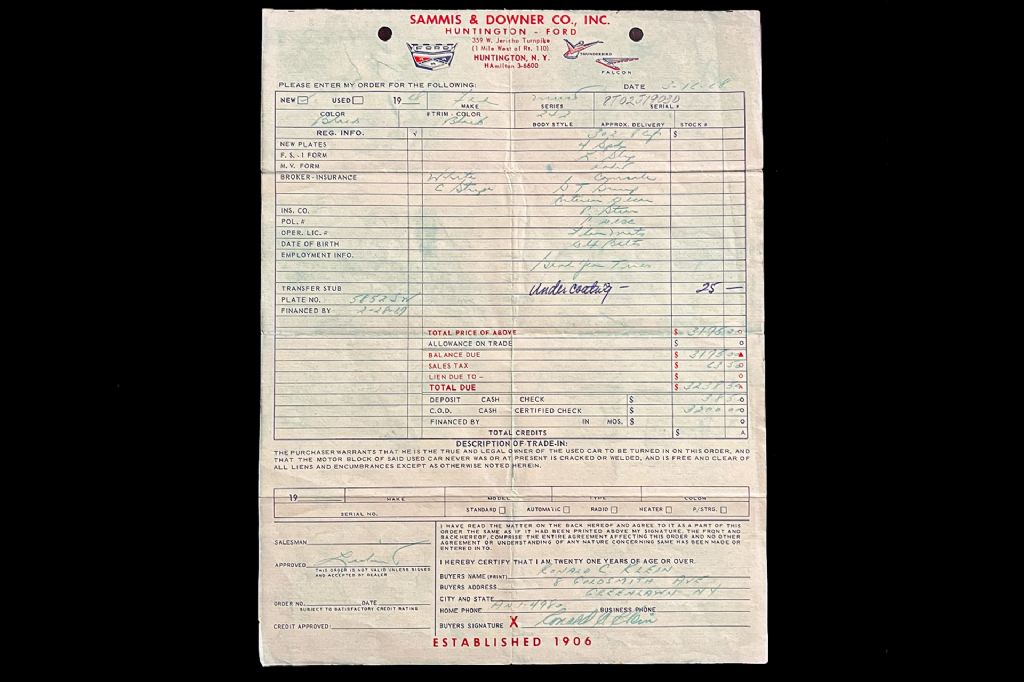 SAMMIS & DOWNER CO., INC.
HUNTINGTON - FORD
359 W. Jericho Turnpike
(1 Mile West of Rt. 110)
HUNTINGTON, N. Y.
HAmilton 3-6600
FORD
THUNDERBIRD
FALCON
PLEASE ENTER MY ORDER FOR THE FOLLOWING:
DATE
NEW USED 19 MAKE SERIES 8T02J19030 SERIAL #
COLOR # TRIM - COLOR BODY STYLE APPROX. DELIVERY STOCK #
Black
REG. INFO. √ 302 $
NEW PLATES 4 Spd
F. S. - 1 FORM
M. V. FORM
BROKER - INSURANCE White Console
C Stripe
INS. CO. P. Steer
POL. #
OPER. LIC. # Floor Mats
DATE OF BIRTH Belts
EMPLOYMENT INFO.
Good Year Tires
TRANSFER STUB Undercoating — 25 —
PLATE NO.
FINANCED BY
TOTAL PRICE OF ABOVE $
ALLOWANCE ON TRADE $
BALANCE DUE $
SALES TAX $
LIEN DUE TO – $
TOTAL DUE $
DEPOSIT CASH CHECK $
C.O.D. CASH CERTIFIED CHECK $
FINANCED BY IN MOS. $
TOTAL CREDITS $
DESCRIPTION OF TRADE-IN:
THE PURCHASER WARRANTS THAT HE IS THE TRUE AND LEGAL OWNER OF THE USED CAR TO BE TURNED IN ON THIS ORDER, AND
THAT THE MOTOR BLOCK OF SAID USED CAR NEVER WAS OR AT PRESENT IS CRACKED OR WELDED, AND IS FREE AND CLEAR OF
ALL LIENS AND ENCUMBRANCES EXCEPT AS OTHERWISE NOTED HEREIN.
19 MAKE MODEL TYPE COLOR
SERIAL NO. STANDARD AUTOMATIC RADIO HEATER P/STRG.
I HAVE READ THE MATTER ON THE BACK HEREOF AND AGREE TO IT AS A PART OF THIS
ORDER THE SAME AS IF IT HAD BEEN PRINTED ABOVE MY SIGNATURE, THE FRONT AND
BACK HEREOF, COMPRISE THE ENTIRE AGREEMENT AFFECTING THIS ORDER AND NO OTHER
AGREEMENT OR UNDERSTANDING OF ANY NATURE CONCERNING SAME HAS BEEN MADE OR
ENTERED INTO.
I HEREBY CERTIFY THAT I AM TWENTY ONE YEARS OF AGE OR OVER.
SALESMAN
APPROVED
THIS ORDER IS NOT VALID UNLESS SIGNED
AND ACCEPTED BY DEALER
BUYERS NAME (PRINT) RONALD C KLEIN
BUYERS ADDRESS 8 GOLDSMITH AVE
CITY AND STATE GREENLAWN NY
ORDER NO. DATE
SUBJECT TO SATISFACTORY CREDIT RATING
HOME PHONE BUSINESS PHONE
CREDIT APPROVED:
BUYERS SIGNATURE X
ESTABLISHED 1906